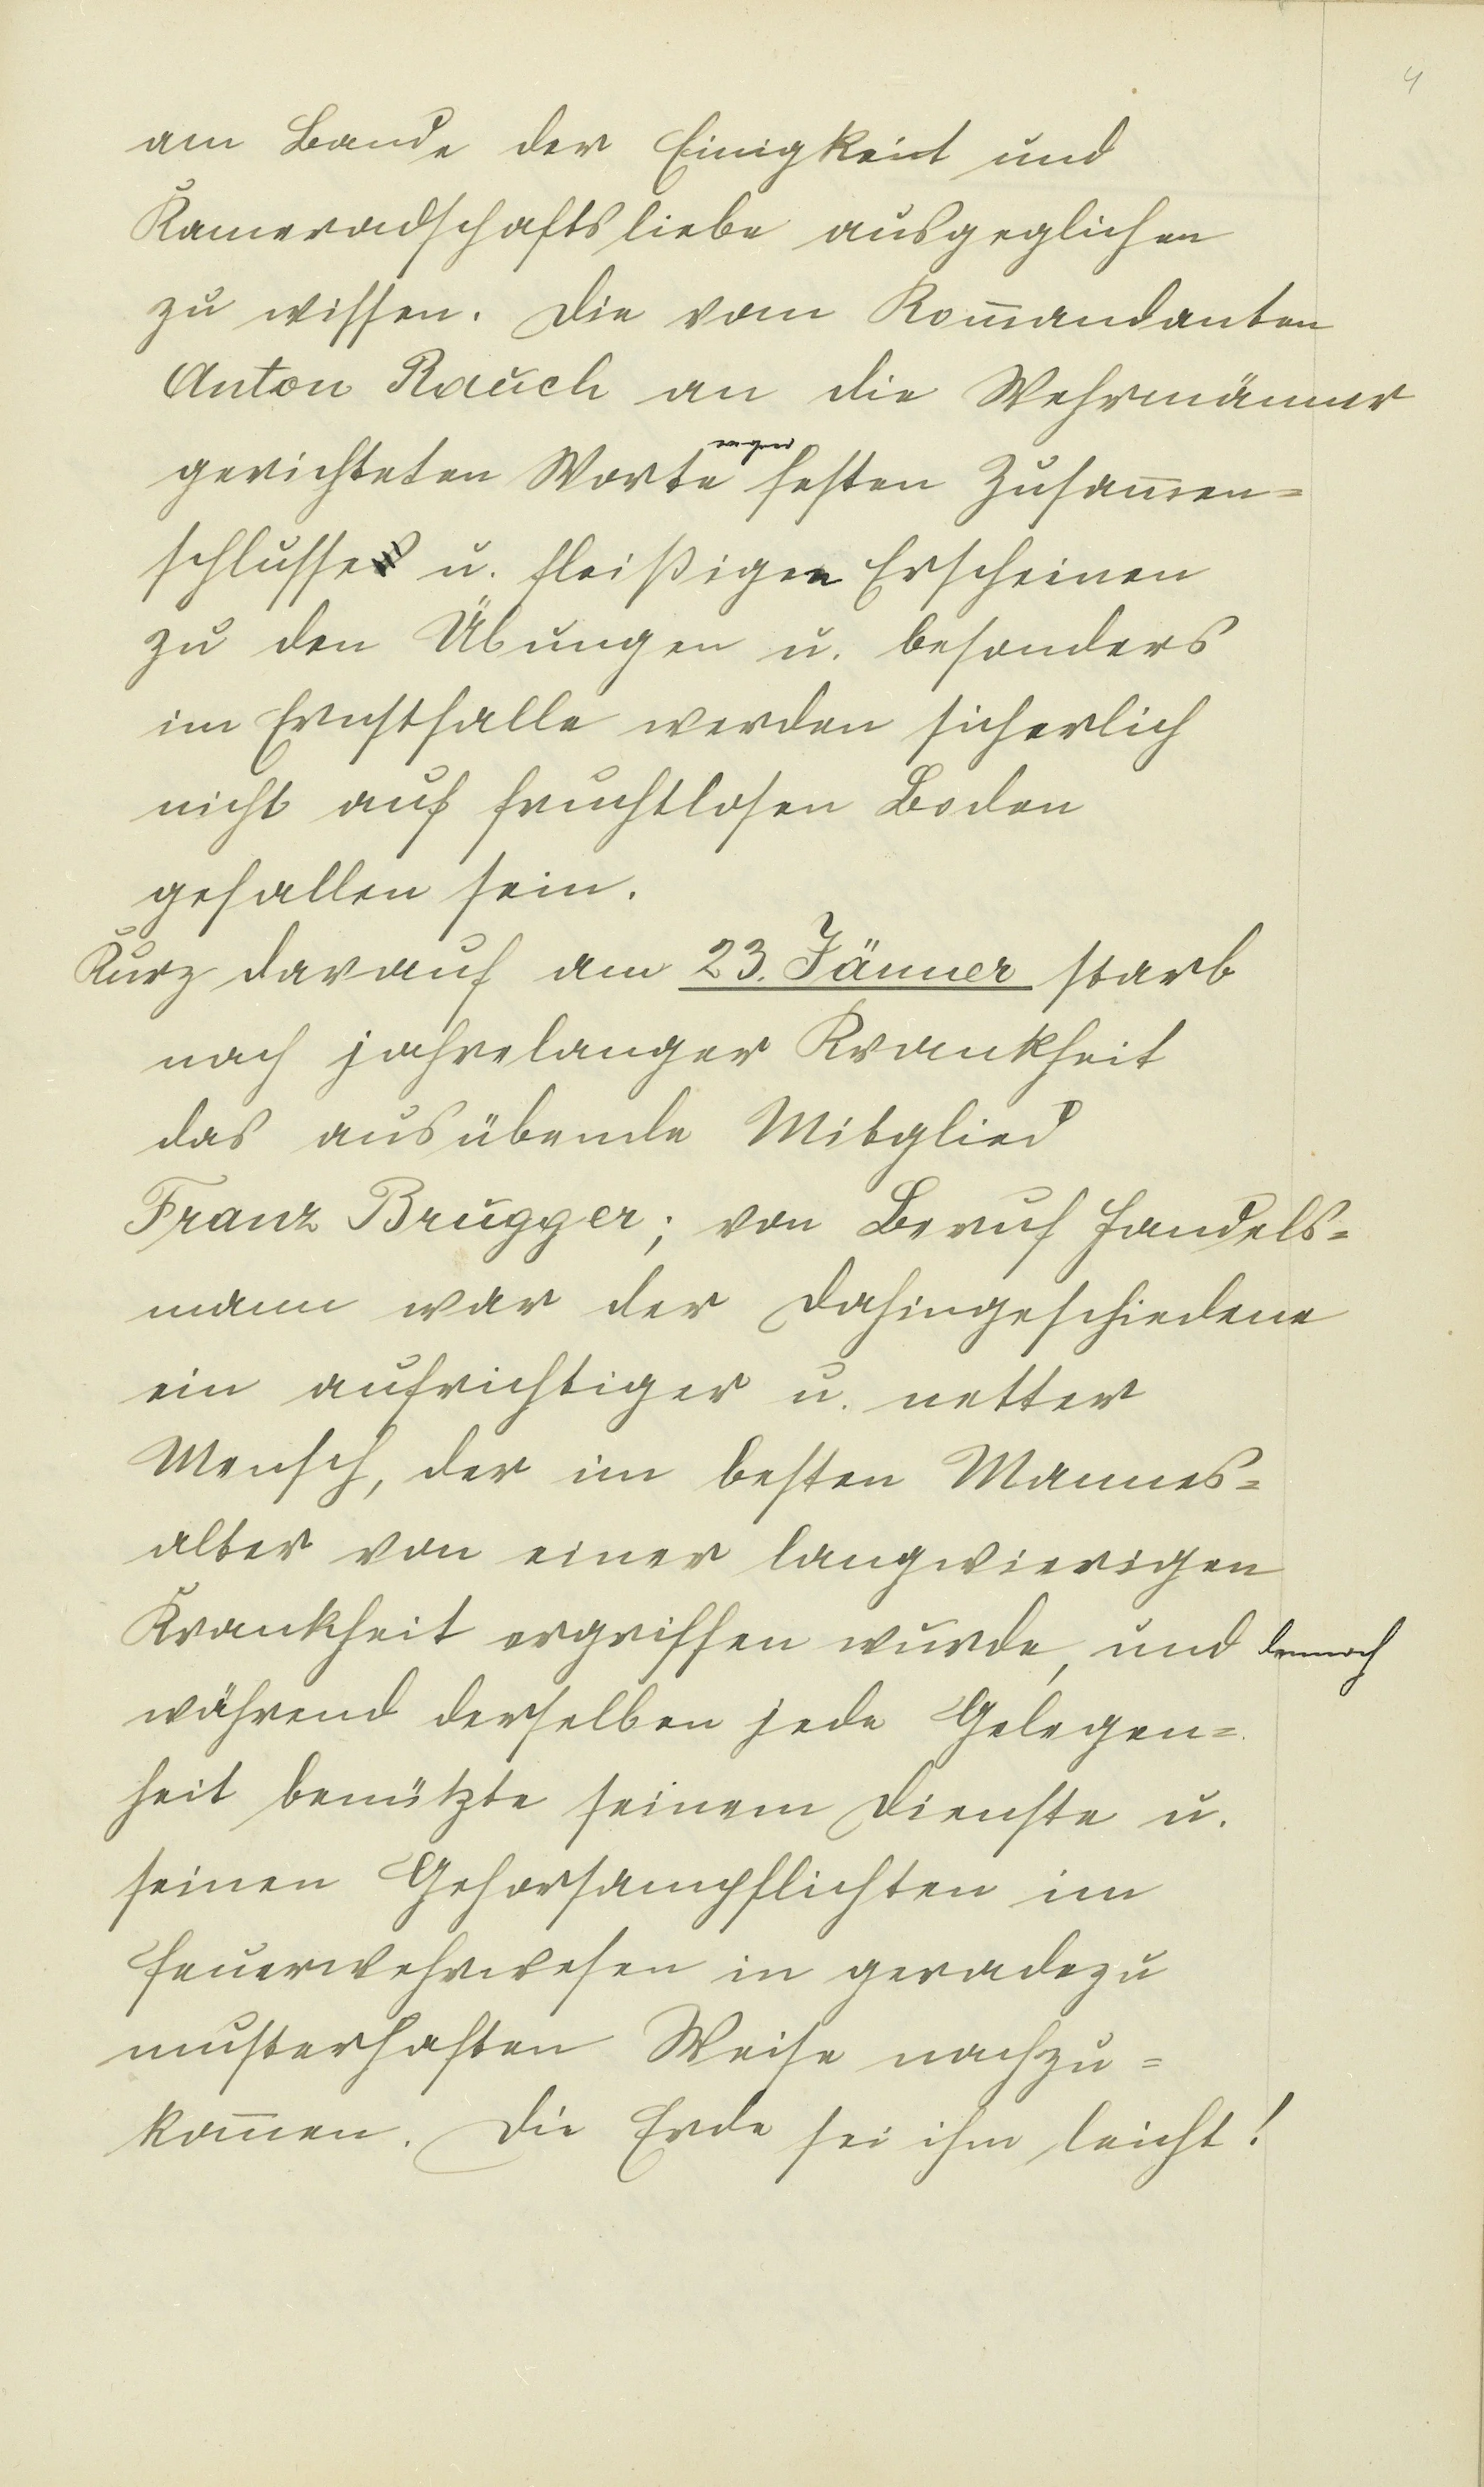 4
am Bande der Einigkeit und
Kameradschaftsliebe ausgeglichen
zu wissen. Die vom Kom̅andanten
Anton Rauch an die Wehrmänner
wegen
gerichteten Worte festen Zusam̅en=
schlusses u. fleißigen Erscheinen
zu den Übungen u. besonders
im Ernstfalle werden sicherlich
nicht auf fruchtlosen Boden
gefallen sein.
Kurz darauf am 23. Jänner starb
nach jahrelanger Krankheit
das ausübende Mitglied
Franz Brugger; von Beruf Handels=
mann war der Dahingeschiedene
ein aufrichtiger u. netter
Mensch, der im besten Mannes=
alter von einer langwierigen
Krankheit ergriffen wurde, und dennoch
während derselben jede Gelegen=
heit benützte seinem Dienste u.
seinen Gehorsampflichten im
Feuerwehrwesen in geradezu
musterhaften Weise nachzu=
kom̅en. Die Erde sei ihm leicht!